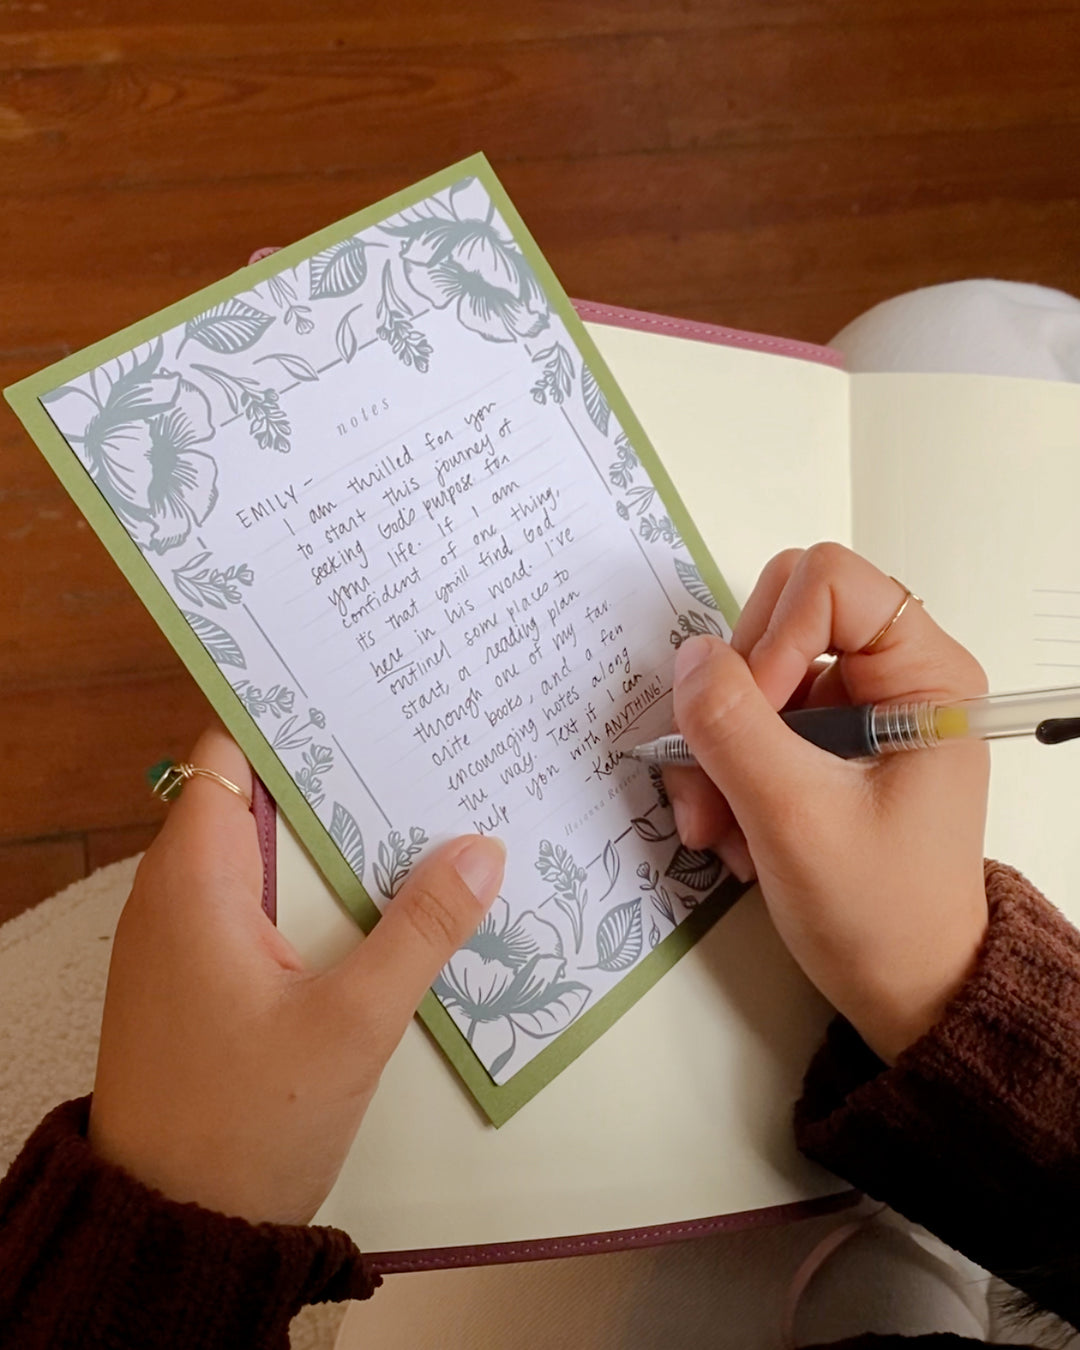 notes
EMILY-
I am thrilled for you
to start this journey of
seeking God's purpose for
your life. If I am
confident of one thing,
it's that you'll find God
here in his word. I've
outlined some places to
start, a reading plan
through one of my fav-
orite books, and a few
encouraging notes along
the way. Text if I can
help you with ANYTHING!
-Katie
Hosanna Revival